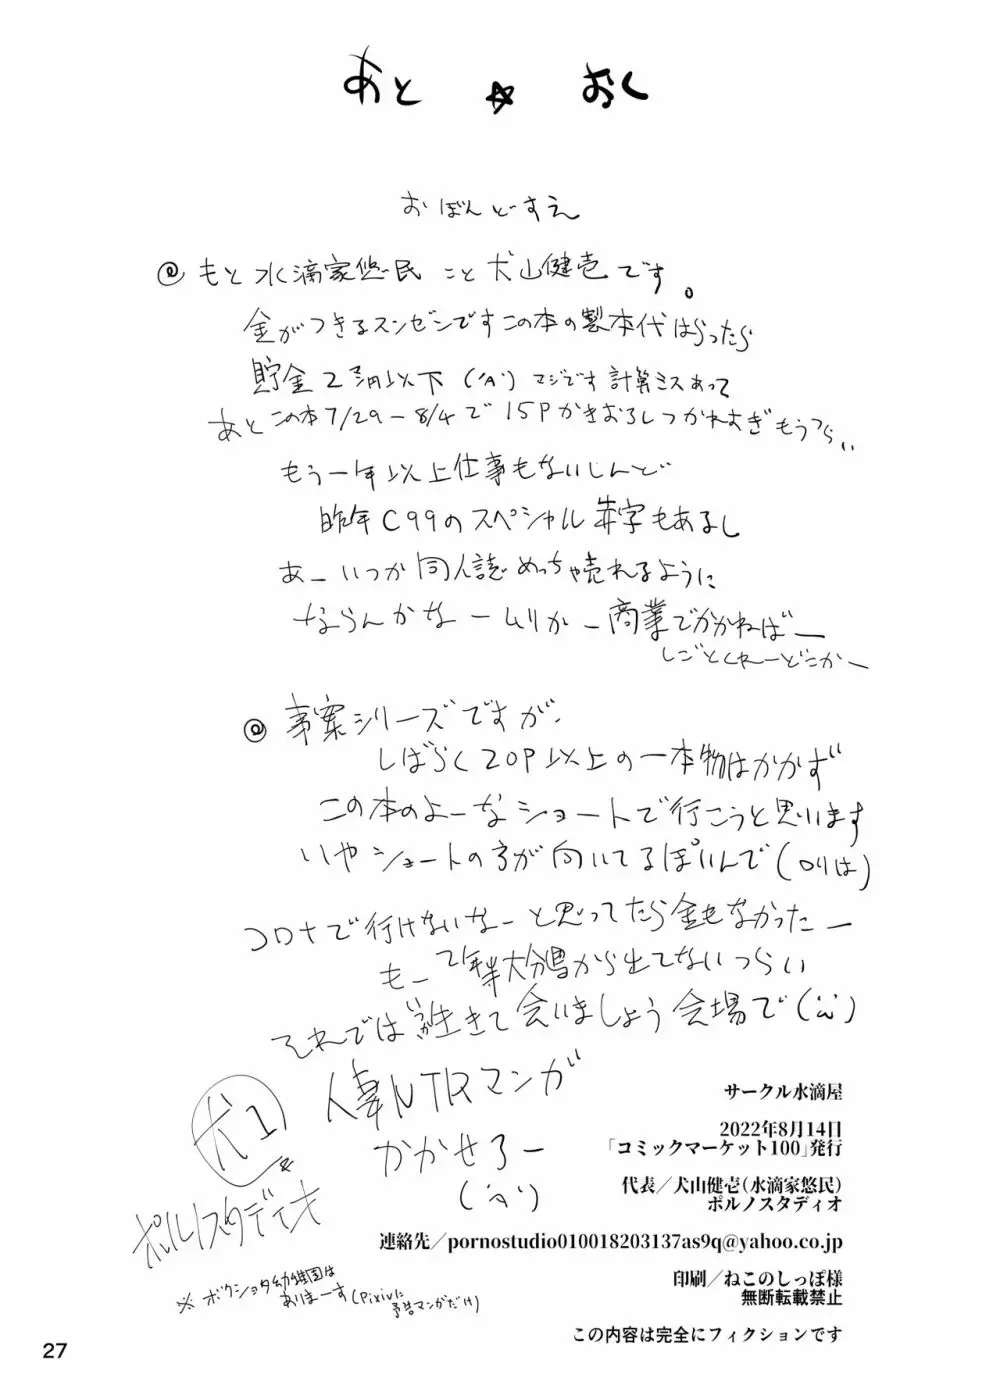 あと ☆ おく
おばんどすえ
@ もと水滴家悠民こと犬山健壱です。
金がつきるスンゼンですこの本の製本代はらったら
貯金2万円以下 マジです計算ミスあって
あとこの本7/29-8/4で15Pかきおろしつかれすぎもうつらい
もう一年以上仕事もないじんど
昨年C99のスペシャル赤字もあるし
あーいつか同人誌めっちゃ売れるように
ならんかなームリかー商業でかかねばー
しごとくれーどこかー
@ 事案シリーズですが、
しばらく20P以上の一本物はかかず
この本のよーなショートで行こうと思います
いやショートの方が向いてるぽいんで(ロリは)
コロナで行けないなーと思ってたら金もなかったー
もー2年半大分県から出てないつらい
それでは生きて会いましょう会場で
人妻NTRマンガ
かかせろー
犬1
ポルノスタディオ
※ボクショタ幼稚園は
ありまーす(Pixivに
予告マンガだけ)
サークル水滴屋
2022年8月14日
「コミックマーケット100」発行
代表/犬山健壱(水滴家悠民)
ポルノスタディオ
連絡先/pornostudio010018203137as9q@yahoo.co.jp
印刷/ねこのしっぽ様
無断転載禁止
この内容は完全にフィクションです
27